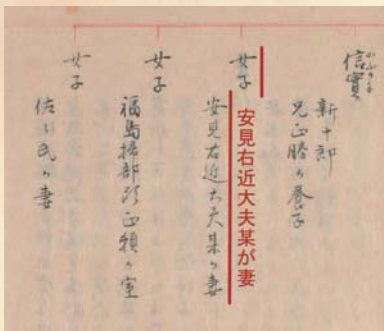 信實
新十郎
兄正勝か養子
女子
安見右近大夫某が妻
安見右近大夫某か妻
女子
福島掃部頭正頼か室
女子
氏か妻